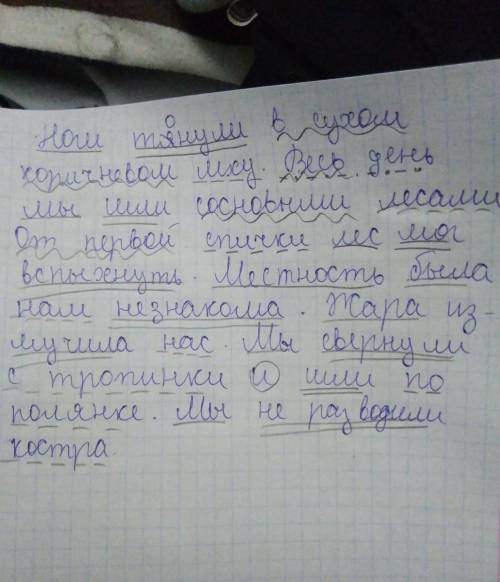 Ноги тонули в сухом
коричневом мху. Весь день
мы шли сосновыми лесами
От первой спички лес мог
вспыхнуть. Местность была
нам незнакома. Жара из-
мучила нас. Мы свернули
с тропинки и шли по
полянке. Мы не разводили
костра.